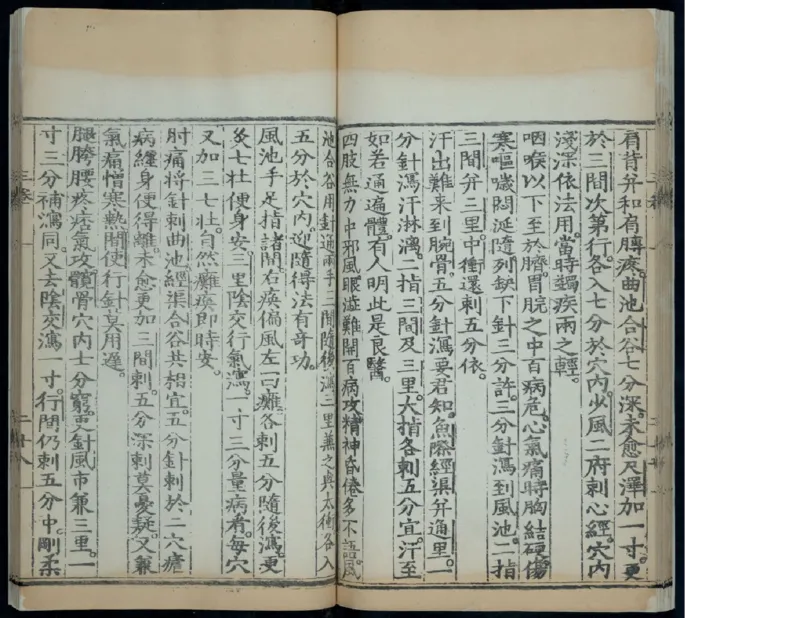 肩背并和肩膊疼。曲池合谷七分深。未愈尺澤加一寸。更
於三間次第行。各入七分於穴內。少風二府刺心經。穴內
淺深依法用。當時蠲疾兩之輕。
咽喉以下至於臍。胃脘之中百病危。心氣痛時胸結硬。傷
寒嘔噦悶涎隨。列缺下針三分許。三分針瀉到風池。二指
三間并三里。中衝還刺五分依。
汗出難來到腕骨。五分針瀉要君知。魚際經渠并通里。一
分針瀉汗淋漓。二指三間及三里。大指各刺五分宜。汗至
如若通遍體。有人明此是良醫。
四肢無力中邪風。眼澁難開百病攻。精神昏倦多不語。風
池合谷用針通。兩手三間隨後瀉。三里兼之與太衝。各入
五分於穴內。迎隨得法有奇功。
風池手足指諸間。右瘓偏風左曰癱。各刺五分隨後瀉。更
灸七壯便身安。三里陰交行氣瀉。一寸三分量病看。每穴
又加三七壯。自然癱瘓即時安。
肘痛將針刺曲池。經渠合谷共相宜。五分針刺於二穴。瘧
病纏身便得離。未愈更加三間刺。五分深刺莫憂疑。又兼
氣痛憎寒熱。間使行針莫用遲。
腿胯腰疼痞氣攻。髖骨穴內七分窮。更針風市兼三里。一
寸三分補瀉同。又去陰交瀉一寸。行間仍刺五分中。剛柔